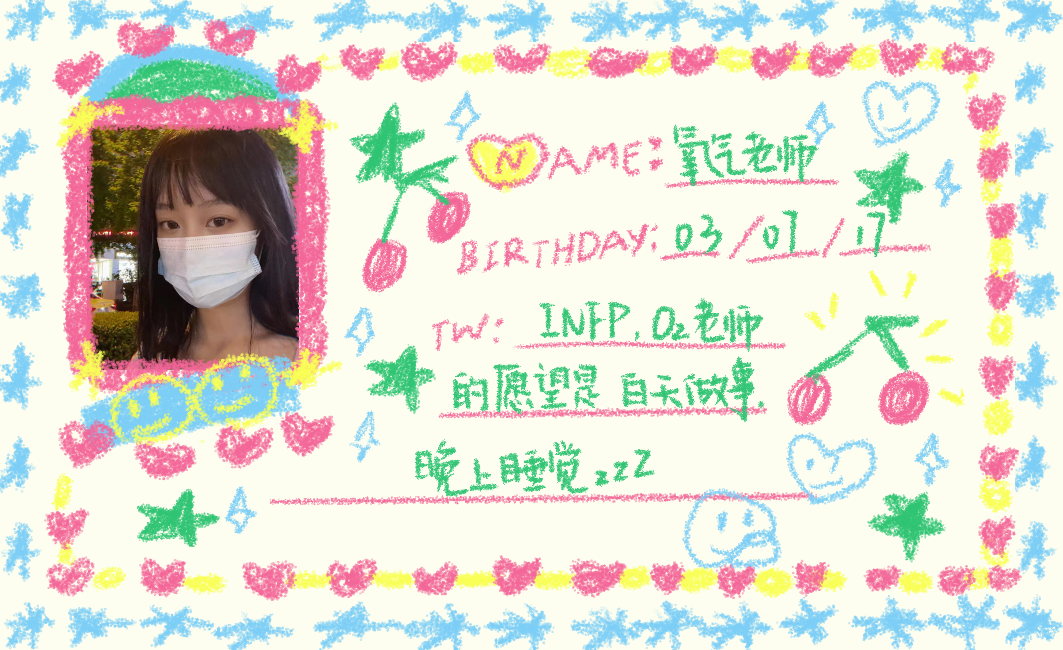 NAME: 氧气老师
BIRTHDAY: 03/07/17
TW: INFP, O2老师
的愿望是 白天做事,
晚上睡觉zzZ